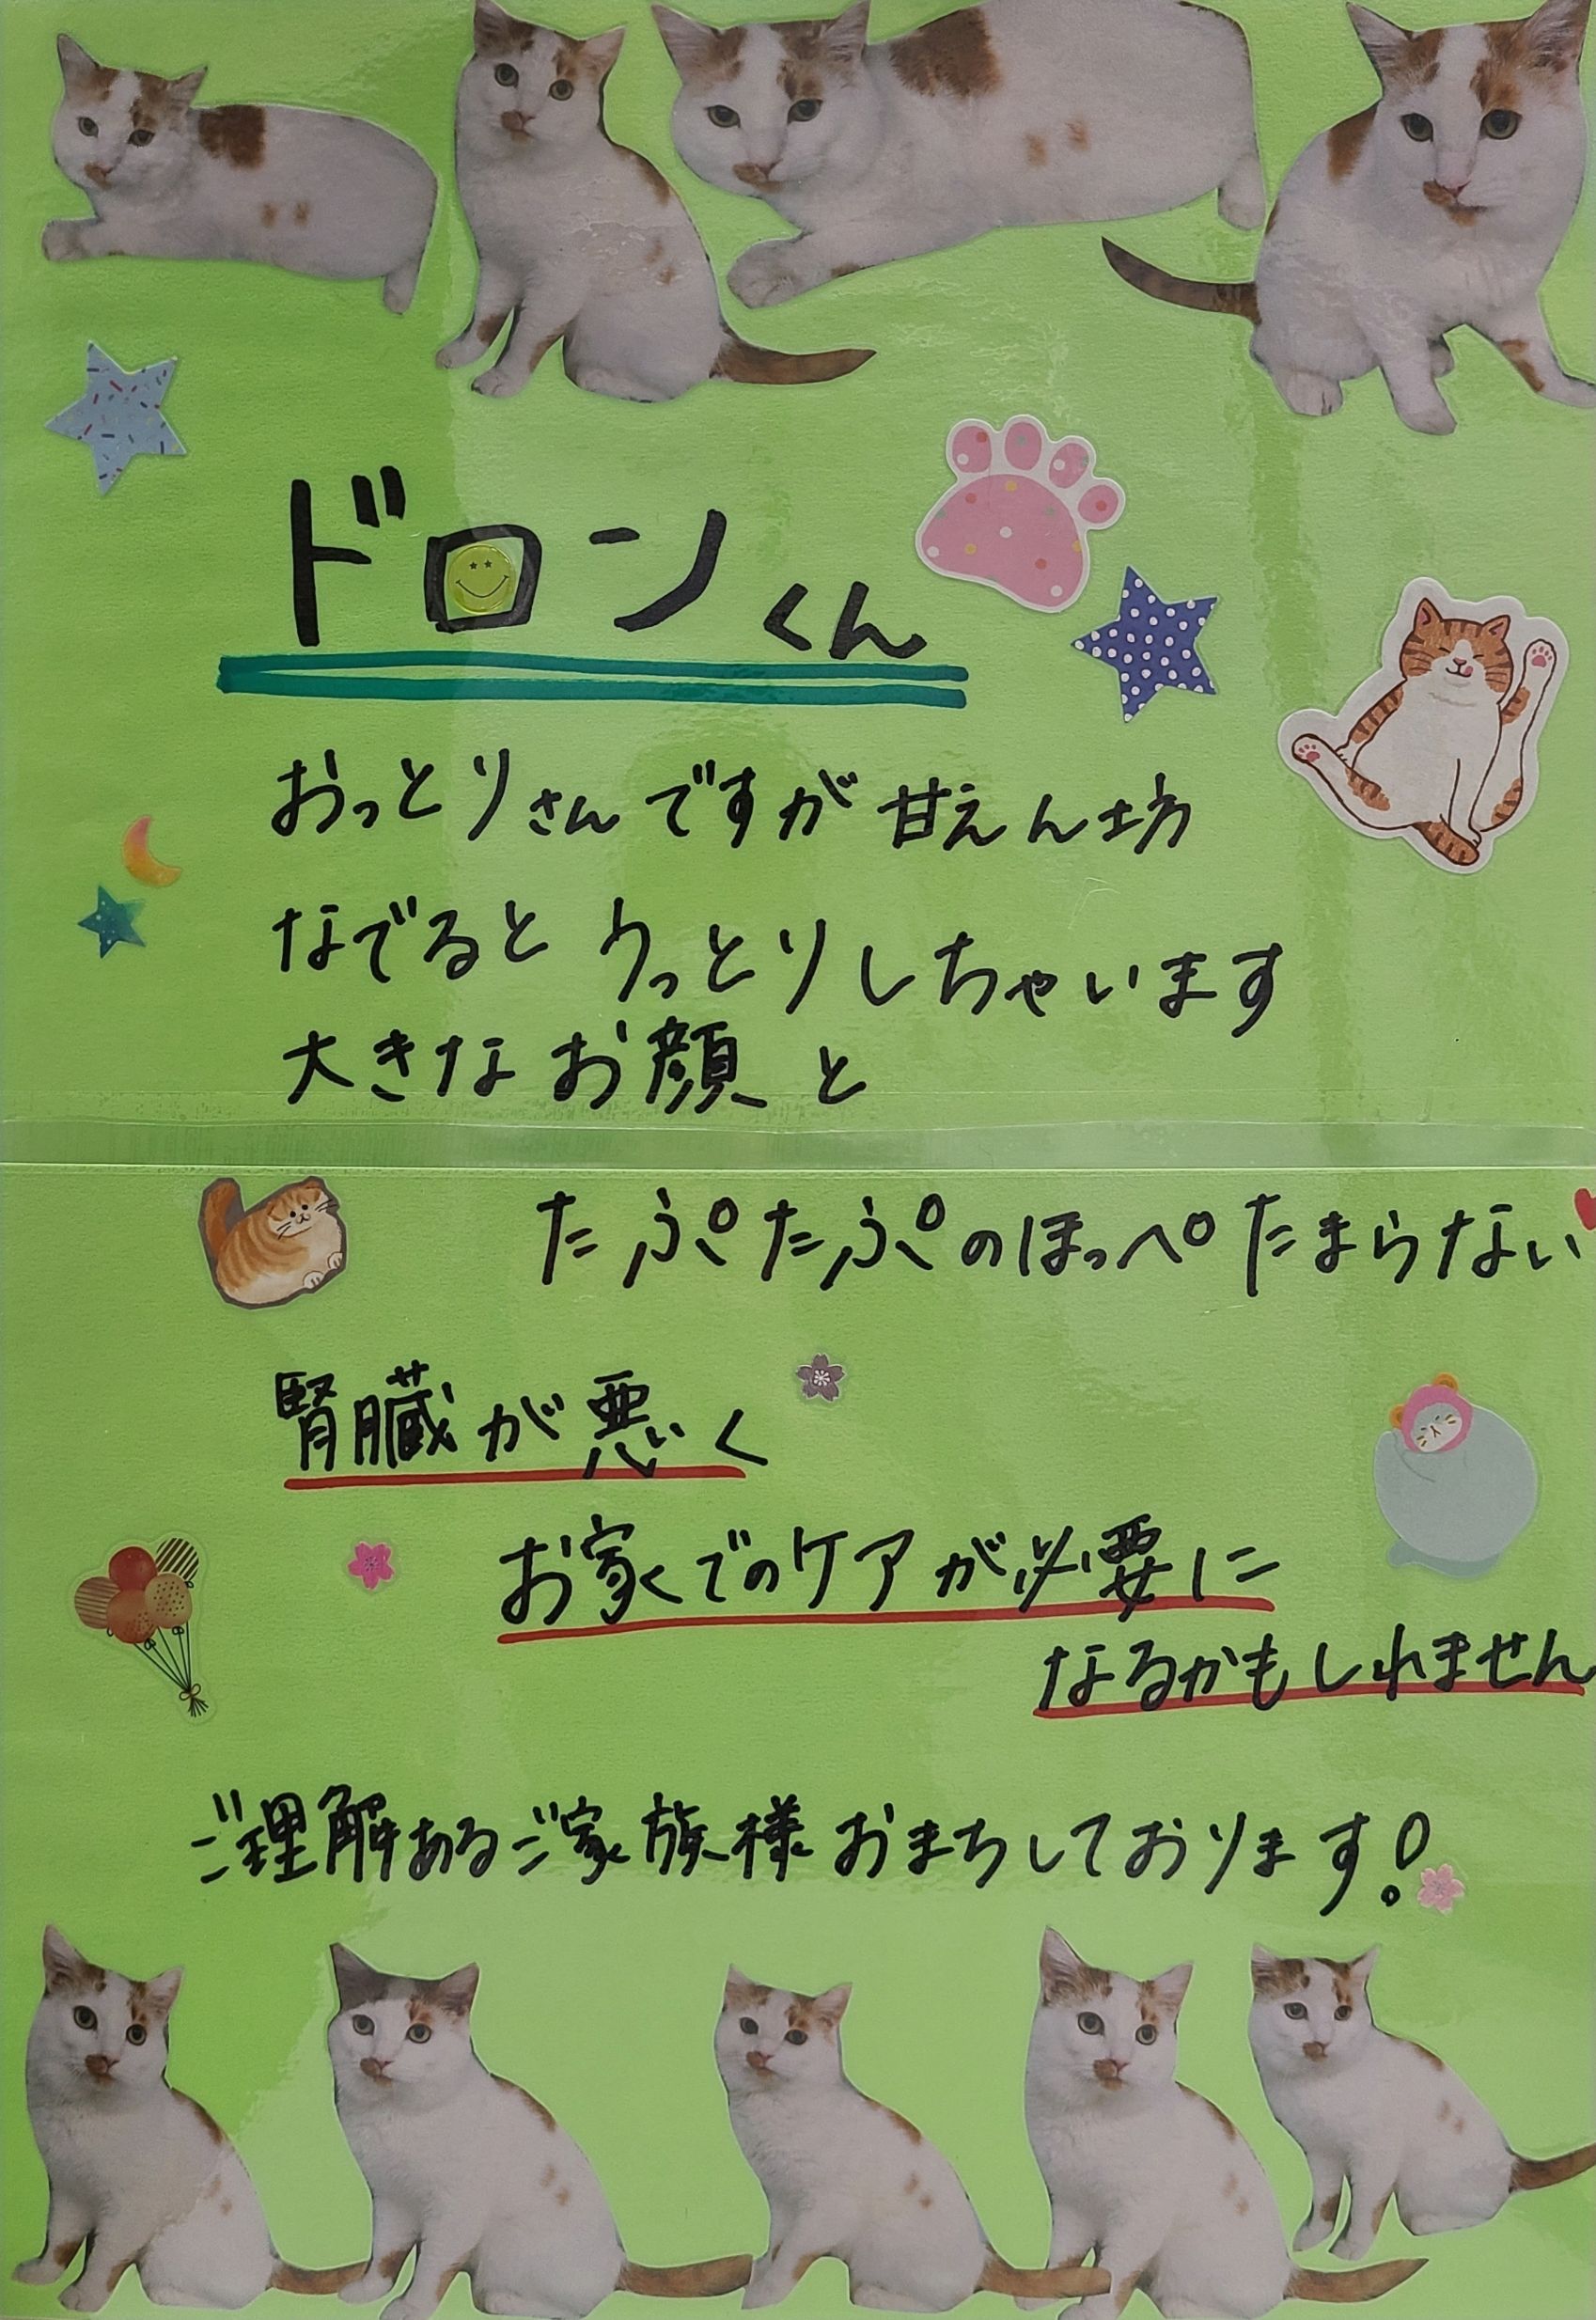 ドロンくん
おっとりさんですが甘えん坊
なでるとうっとりしちゃいます
大きなお顔と
たぷたぷのほっぺたまらない
腎臓が悪く
お家でのケアが必要に
なるかもしれません
ご理解あるご家族様おまちしております!